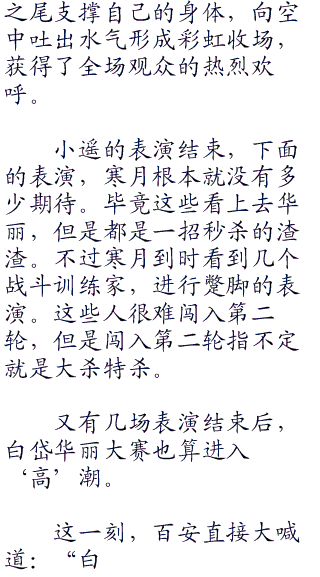 之尾支撑自己的身体，向空
中吐出水气形成彩虹收场，
获得了全场观众的热烈欢
呼。
小遥的表演结束，下面
的表演，寒月根本就没有多
少期待。毕竟这些看上去华
丽，但是都是一招秒杀的渣
渣。不过寒月到时看到几个
战斗训练家，进行蹩脚的表
演。这些人很难闯入第二
轮，但是闯入第二轮指不定
就是大杀特杀。
又有几场表演结束后，
白岱华丽大赛也算进入
‘高’潮。
这一刻，百安直接大喊
道：“白